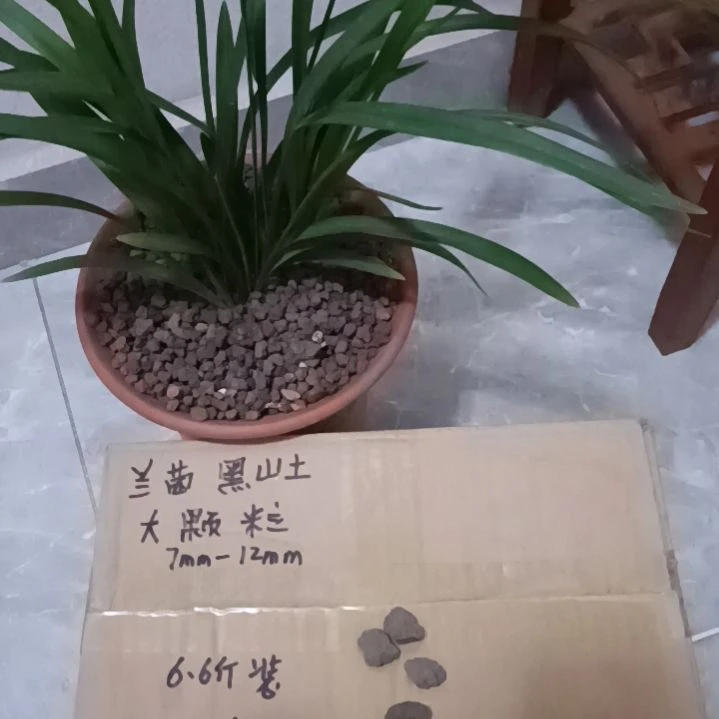 兰茜 黑山土
大 颗 粒
7mm-12mm
6.6斤装